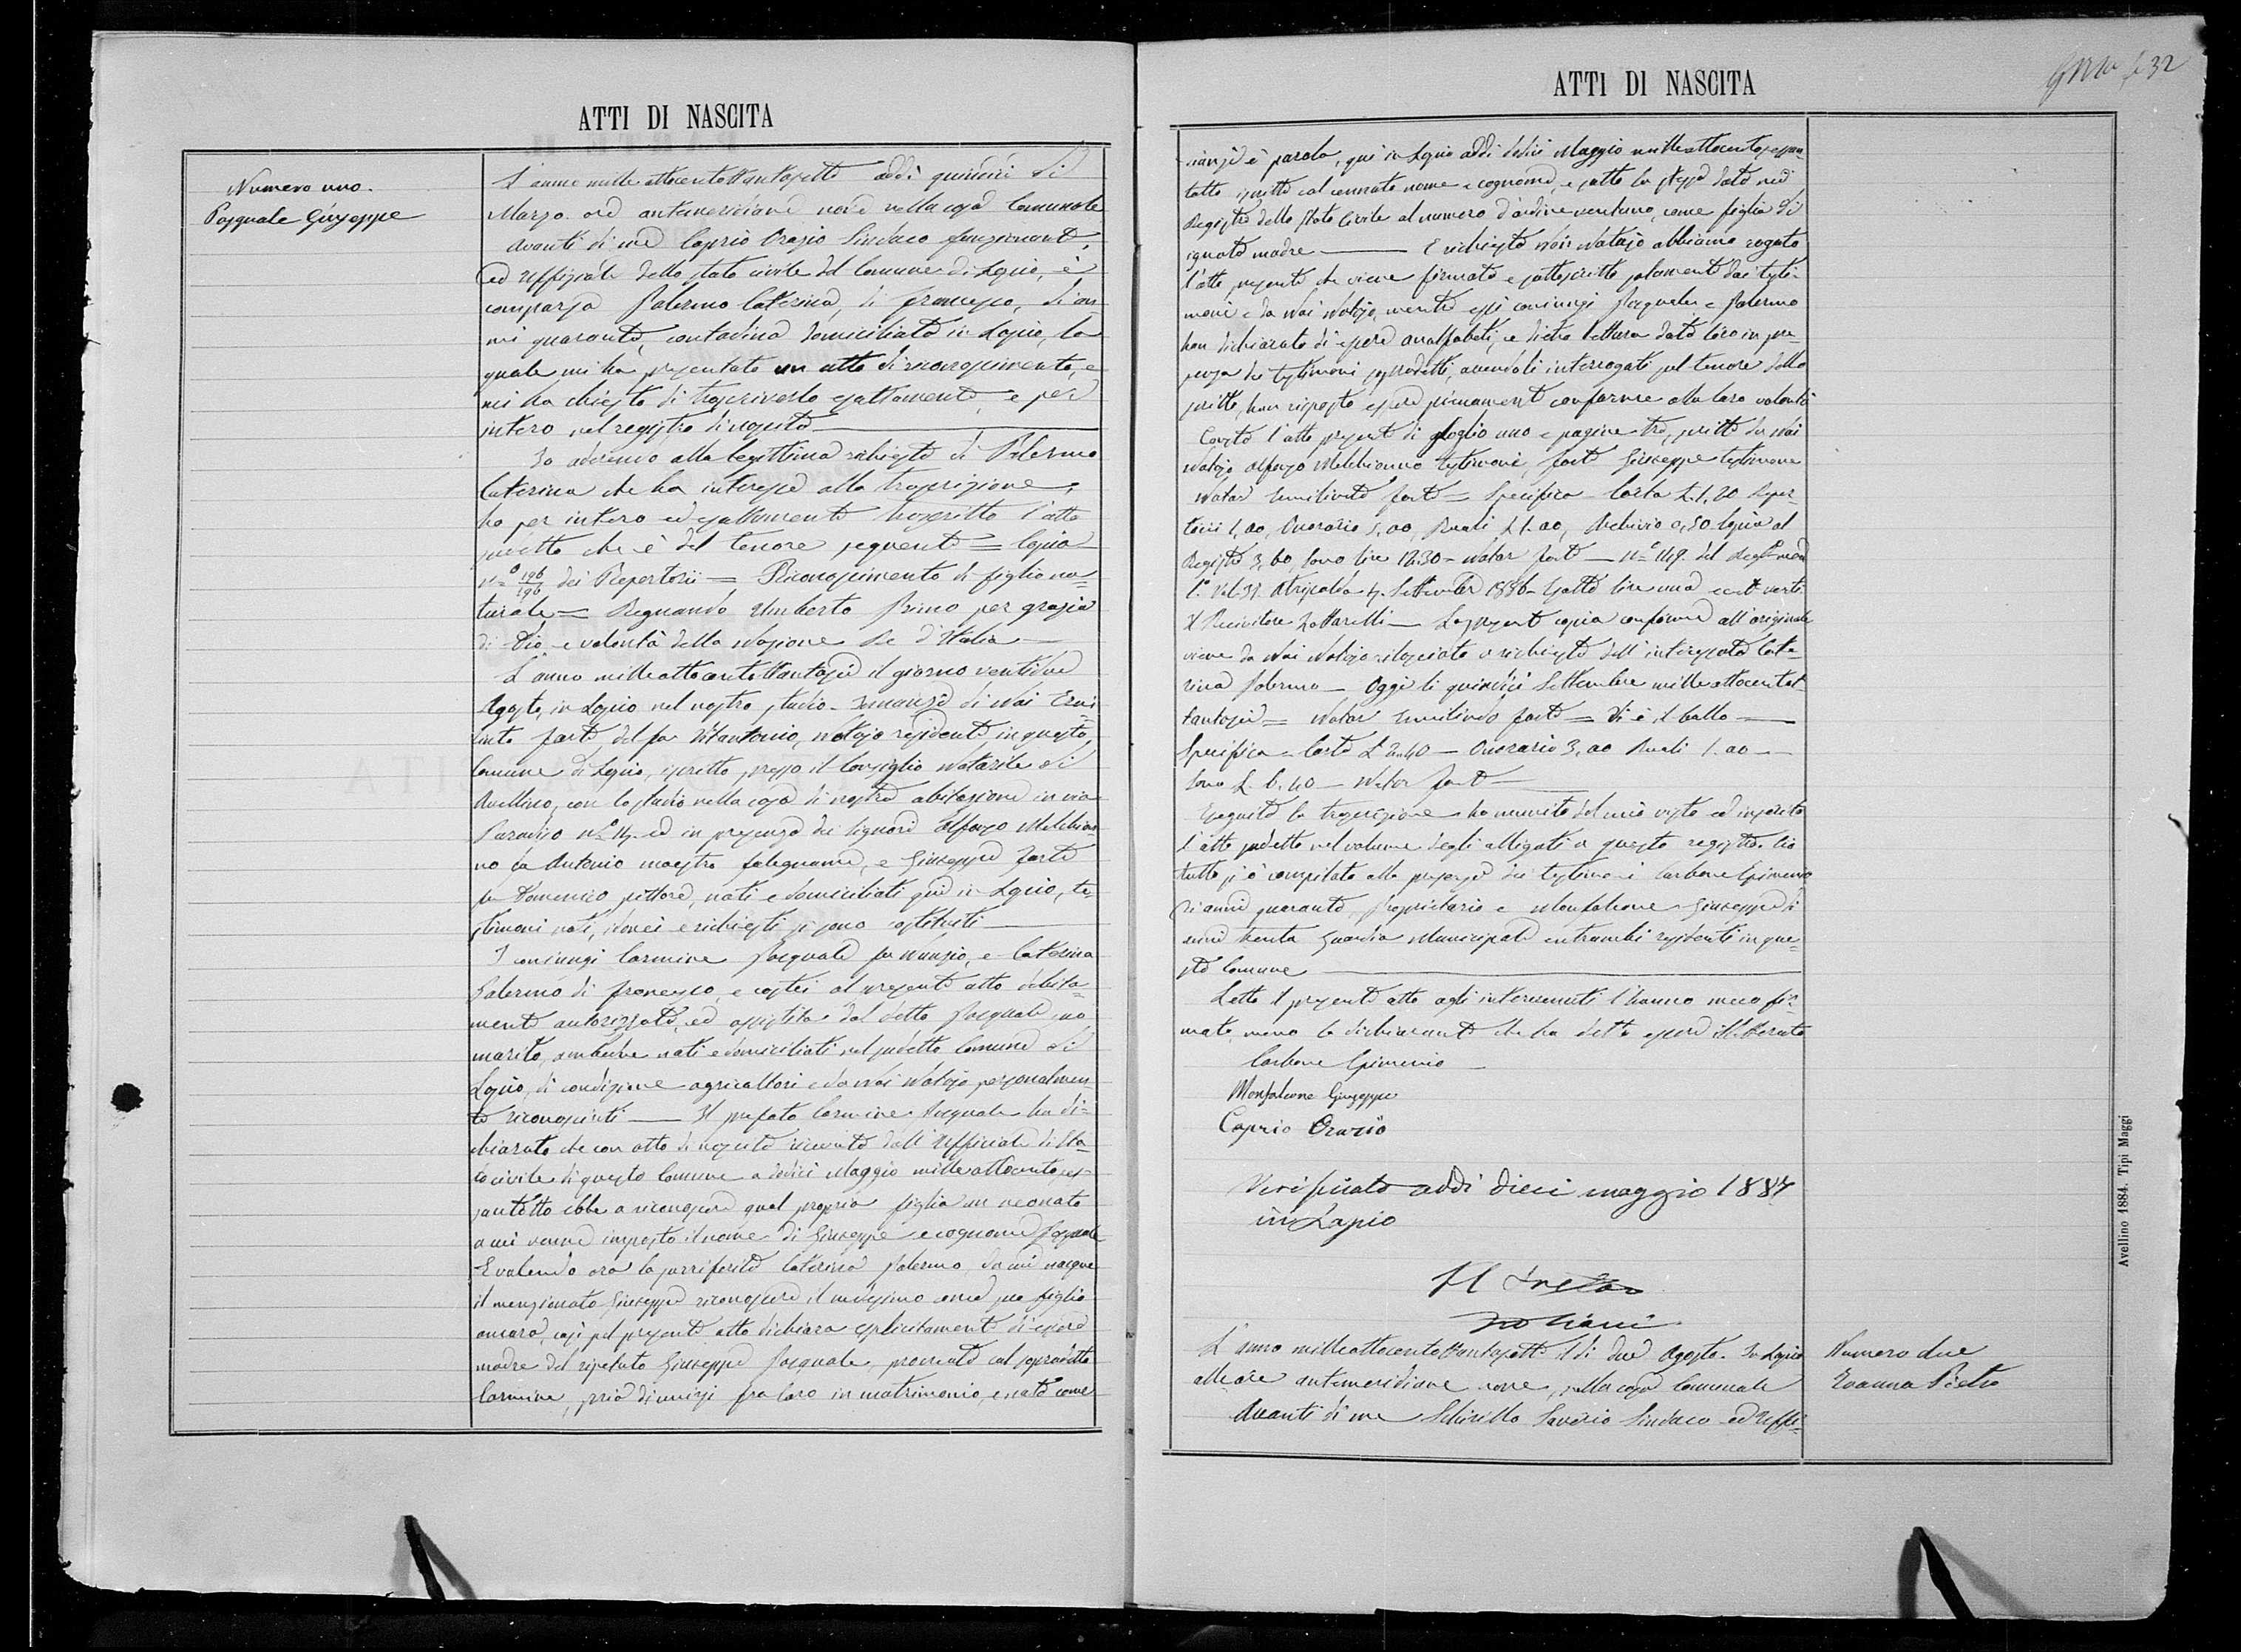 ATTI DI NASCITA
Numero uno.
Pasquale Giuseppe
L'anno mille ottocentottantasette addì quindici di
Marzo ore antimeridiane nove nella casa Comunale
Avanti di me Caprio Orazio Sindaco funzionante,
ed Uffiziale dello stato civile del Comune di Lapio, è
comparsa Palermo Caterina, di Francesco, di an-
ni quaranta, contadina domiciliata in Lapio, la
quale mi ha presentato un atto di riconoscimento, e
mi ha chiesto di trascriverlo esattamente e per
intero nel registro di nascita
Io aderendo alla legittima richiesta di Palermo
Caterina che ha interesse alla trascrizione,
ho per intero ed esattamente trascritto l'atto
suddetto che è del tenore seguente = Copia
N.º 196/196 dei Repertorii = Riconoscimento di figlio na-
turale = Regnando Umberto Primo per grazia
di Dio e volontà della Nazione Re d'Italia
L'anno milleottocentottantasei il giorno ventidue
Agosto, in Lapio nel nostro studio. Innanzi di Noi
Forte del fu Vitantonio, Notajo residente in questo
Comune di Lapio, iscritto presso il Consiglio Notarile di
Avellino, con lo studio nella casa di nostra abitazione in via
Paradiso ed in presenza dei Signori Alfonso Melchion-
no fu Antonio maestro falegname, e Giuseppe Forte
fu Domenico pittore, nati e domiciliati qui in Lapio, te-
stimoni noti, idonei e richiesti si sono costituiti
I coniugi Carmine Pasquale fu Nunzio, e Caterina
Palermo di Francesco, e costei al presente atto debita-
mente autorizzata, ed assistita dal detto Pasquale suo
marito, ambedue nati e domiciliati nel suddetto Comune di
Lapio, di condizione agricoltori e da Noi Notajo personalmen-
te riconosciuti — Il prefato Carmine Pasquale ha di-
chiarato che con atto di nascita ricevuto dall'Ufficiale di Sta-
to civile di questo Comune a dodici Maggio milleottocentoses-
santotto ebbe a riconoscere qual proprio figlio un neonato
a cui venne imposto il nome di Giuseppe e cognome Pasquale
E volendo ora la surriferita Caterina Palermo, da cui nacque
il menzionato Giuseppe riconoscere il medesimo come suo figlio
ancora, così pel presente atto dichiara esplicitamente di essere
madre del ripetuto Giuseppe Pasquale, procreato col sopradetto
Carmine, pria di unirsi fra loro in matrimonio, e nato come
ATTI DI NASCITA
32
innanzi è parola, qui in Lapio addì dodici Maggio milleottocentosessan-
totto iscritto col cennato nome e cognome, e sotto la stessa data nei
Registri dello Stato Civile al numero d'ordine ventuno, come figlio di
ignota madre — E richiesti Noi Notajo abbiamo rogato
l'atto presente che viene firmato e sottoscritto solamente dai testi-
moni e da Noi Notajo, mentre essi coniugi Pasquale e Palermo
han dichiarato di essere analfabeti, e dietro lettura data loro in pre-
senza dei testimoni suddetti, avendoli interrogati sul tenore dello
scritto, han risposto essere pienamente conforme alla loro volontà
Consta l'atto presente di foglio uno e pagine tre, scritto da Noi
Notajo Alfonso Melchionno testimone, Forte Giuseppe testimone
Notar Forte = Specifica Carta L. 1.20 Reper-
torii 1,00, Onorario 5,00, L 1.00, Archivio 0,50 Copia al
Registro 3,60, Sono lire 12.30 — Notar Forte — N.º 149. del Reg.
Atripalda Settembre 1886 — Esatte lire una e cent. venti
Il Ricevitore — La presente copia conforme all'originale
viene da Noi Notajo rilasciata a richiesta dell'interessata Cate-
rina Palermo — Oggi li quindici Settembre milleottocentot-
tantasei = Notar Forte = Vi è il bollo —
Specifica — Carta L 2.40 — Onorario 3,00 1.00 —
Sono L. 6.40 — Notar Forte
Eseguita la trascrizione ho munito del mio visto ed inserito
l'atto suddetto nel volume degli allegati a questo registro. Ciò
tutto si è compilato alla presenza dei testimoni Carbone Epimenio
di anni quaranta, proprietario e Monfalcone Giuseppe di
anni trenta Guardia Municipale entrambi residenti in que-
sto Comune
Letto il presente atto agli intervenuti l'hanno meco fir-
mato, meno la dichiarante che ha detto essere illetterata
Carbone Epimenio
Monfalcone Giuseppe
Caprio Orazio
Verificato addì dieci maggio 1887
in Lapio
Il
L'anno milleottocentottantasette il dì due Agosto. In Lapio
alle ore antimeridiane nove, nella casa Comunale
Avanti di me Schirillo Saverio Sindaco ed Uffi-
Numero due
Evanna Pietro
Avellino 1884. Tipi Maggi